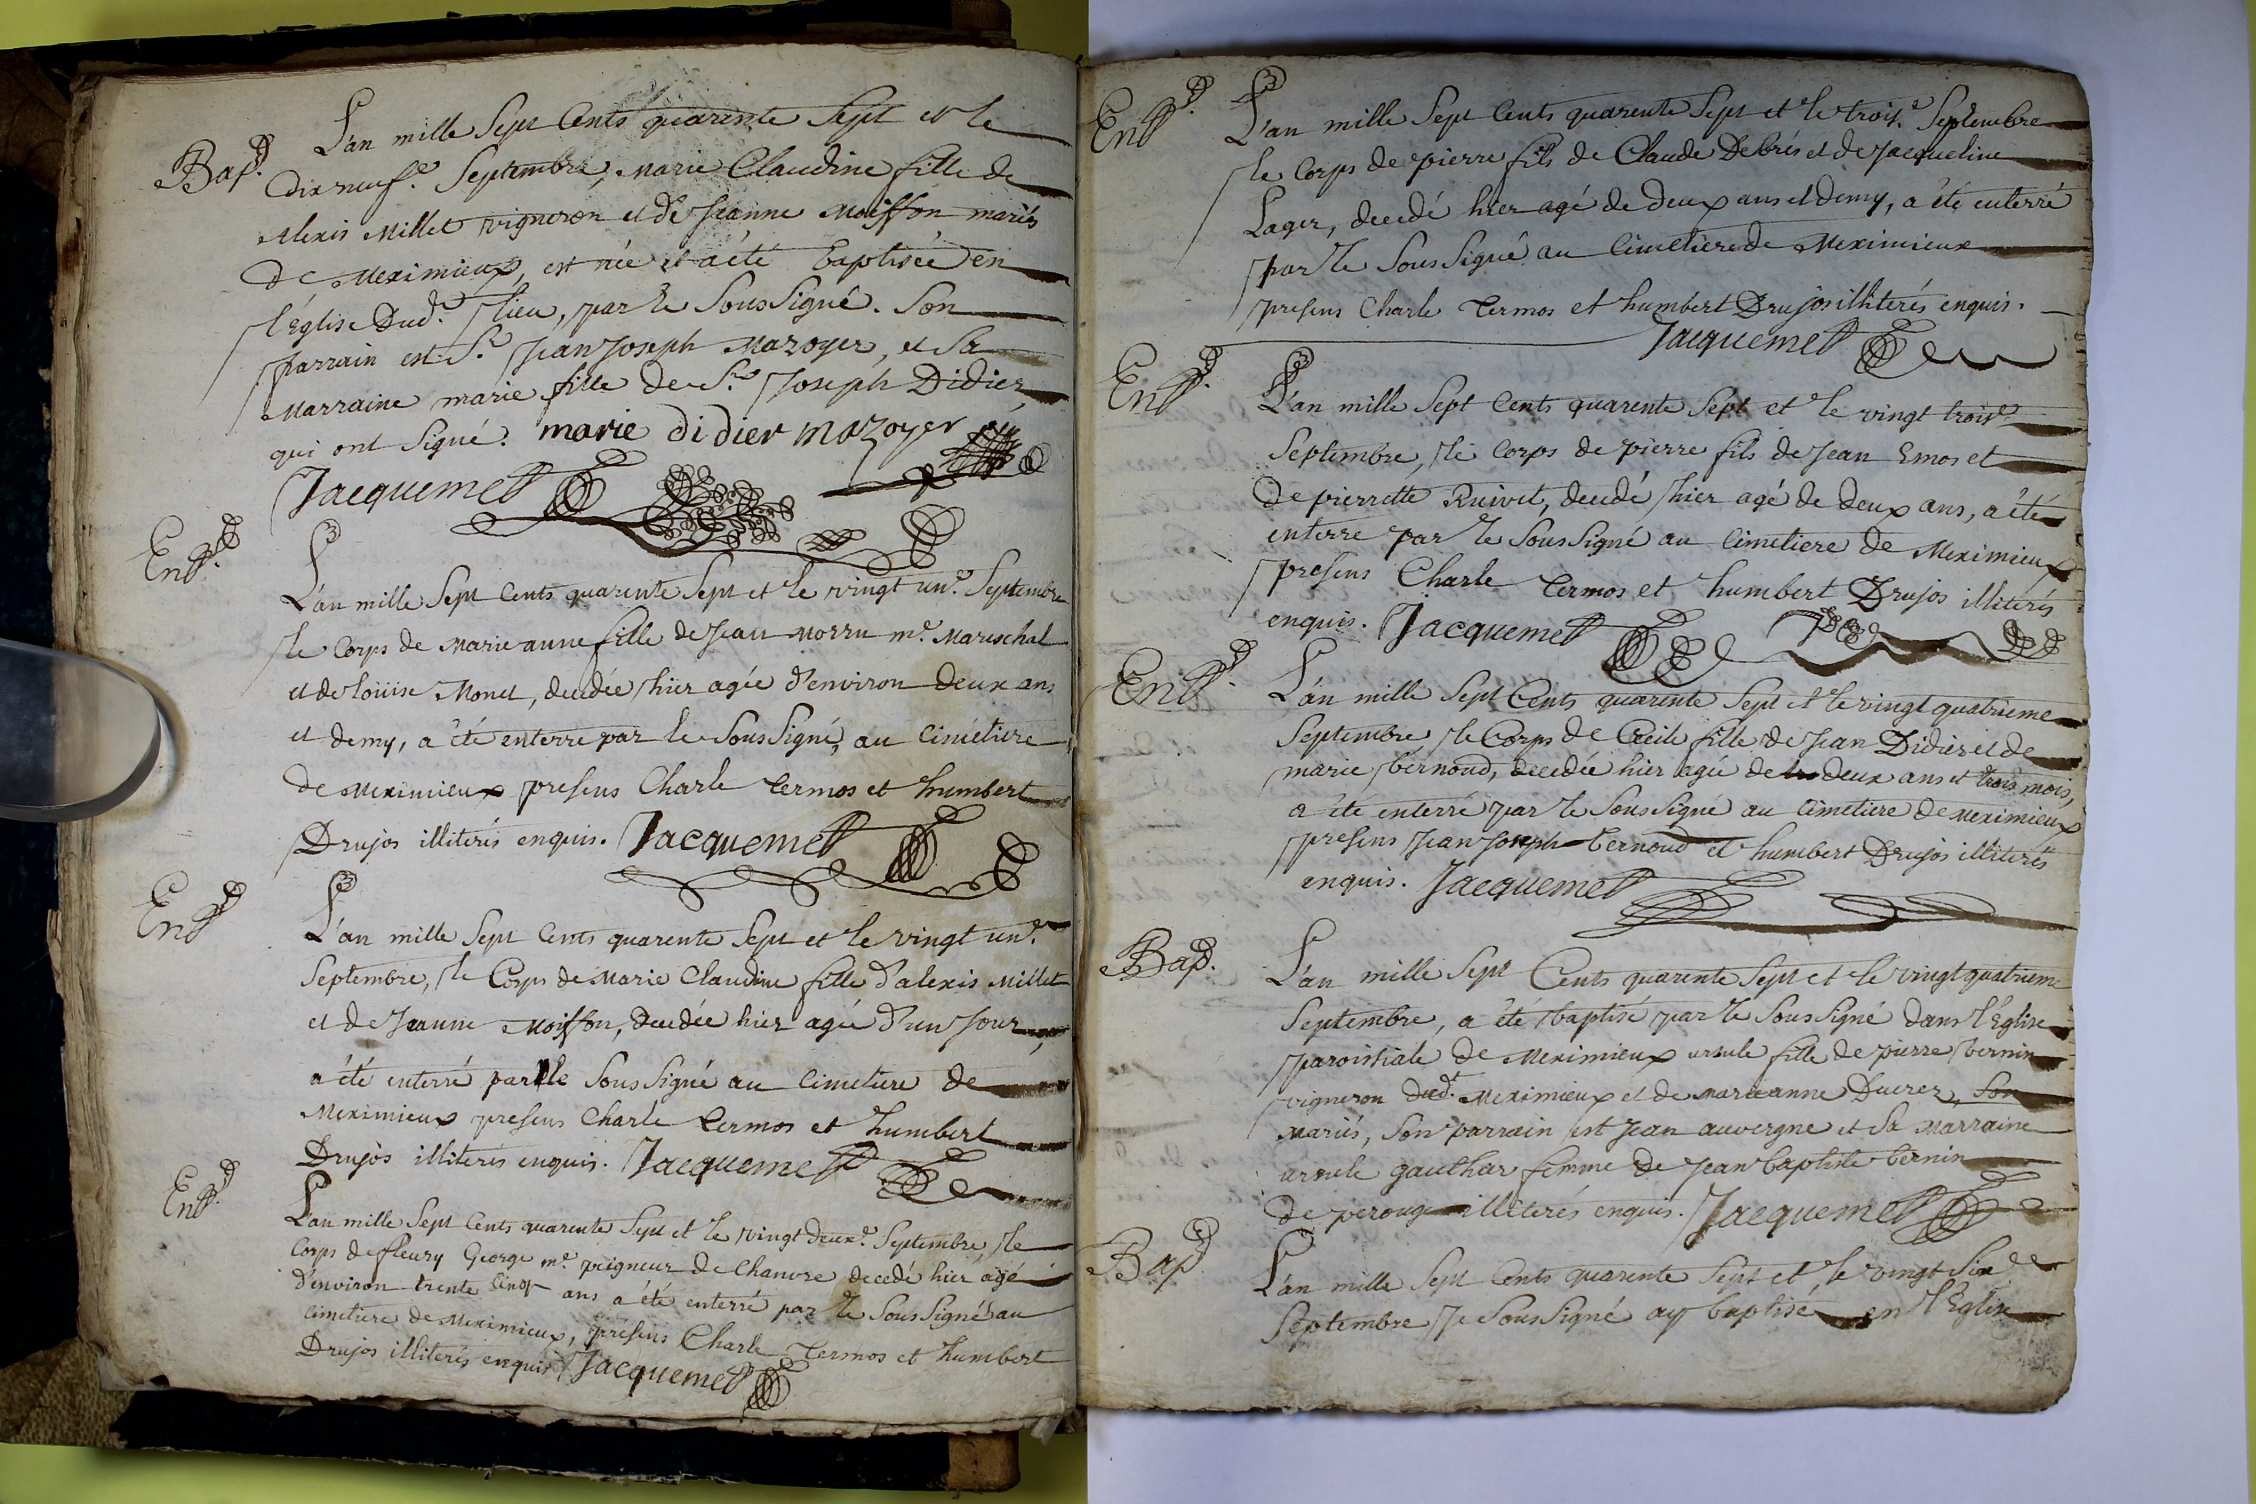 Bap.t
L'an mille Sept Cents quarente Sept et le
dix neuf.e Septembre, Marie Claudine fille de
Alexis Millet vigneron et de Jeanne Moisson mariés
de Meximieux, est née et a été baptisée en
l'Eglise Dud.t lieu, par le Soussigné. Son
parrain est S.r Jean Joseph Mazoyer, et Sa
Marraine marie fille de S.r Joseph Didier
qui ont signé. marie didier mazoyer
Jacquemet
Ent.t
L'an mille Sept Cents quarente Sept et le vingt un.e Septembre
le Corps de Marie anne fille de Jean Morru m.e Mareschal
et de loüise Monet, decedée hier agée d'environ deux ans
et demy, a été enterre par le Soussigné, au Cimetiere
de Meximieux presens Charle Termos et humbert
Drujos illiterés enquis. Jacquemet
Ent.t
L'an mille Sept Cents quarente Sept et le vingt un.e
Septembre, le Corps de Marie Claudine fille d'alexis Millet
et de Jeanne Moisson, decedée hier agée d'un Jour
a été enterré par le Soussigné au Cimetiere de
Meximieux presens Charle Termos et humbert
Drujos illiterés enquis. Jacquemet
Ent.t
L'an mille Sept Cents quarente Sept et le vingt deux.e Septembre, le
Corps de fleury George m.e peigneur de Chanvre decedé hier agé
d'environ trente Cinq ans a été enterré par le Soussigné au
Cimetiere de Meximieux, présens Charle Termos et humbert
Drujos illiterés enquis Jacquemet
Ent.t
L'an mille Sept Cents quarente Sept et le trois.e Septembre
le Corps de pierre fils de Claude Debrés et de Jacqueline
Lager, decedé hier agé de deux ans et demy, a été enterré
par le Soussigné au Cimetiere de Meximieux
presens Charle Termos et humbert Drujos illiterés enquis.
Jacquemet
Ent.t
L'an mille Sept Cents quarente Sept et le vingt trois.e
Septembre, le Corps de pierre fils de Jean Emos et
de pierrette Ruivet, decedé hier agé de deux ans, a été
enterre par le Soussigné au Cimetiere de Meximieux
presens Charle Termos et humbert Drujos illiterés
enquis. Jacquemet
Ent.t
L'an mille Sept Cents quarente Sept et le vingt quatrieme
Septembre le Corps de Cecile fille de Jean Didier et de
marie bernoud, decedée hier agée de deux ans et trois mois,
a été enterré par le Soussigné au Cimetiere de Meximieux
presens Jean Joseph bernoud et humbert Drujos illiterés
enquis. Jacquemet
Bap.t
L'an mille Sept Cents quarente Sept et le vingt quatrieme
Septembre, a été baptisé par le Soussigné dans l'Eglise
paroissiale de Meximieux ursule fille de pierre bernin
vigneron dud.t Meximieux et de Marieanne Ducrez, Son
Mariés, Son parrain est Jean auvergne et Sa Marraine
ursule gauthar femme de Jean baptiste bernin
de peroug illiterés enquis. Jacquemet
Bap.t
L'an mille Sept Cents quarente Sept et le vingt Six.e
Septembre Je Soussigné ay baptisé en l'Eglise